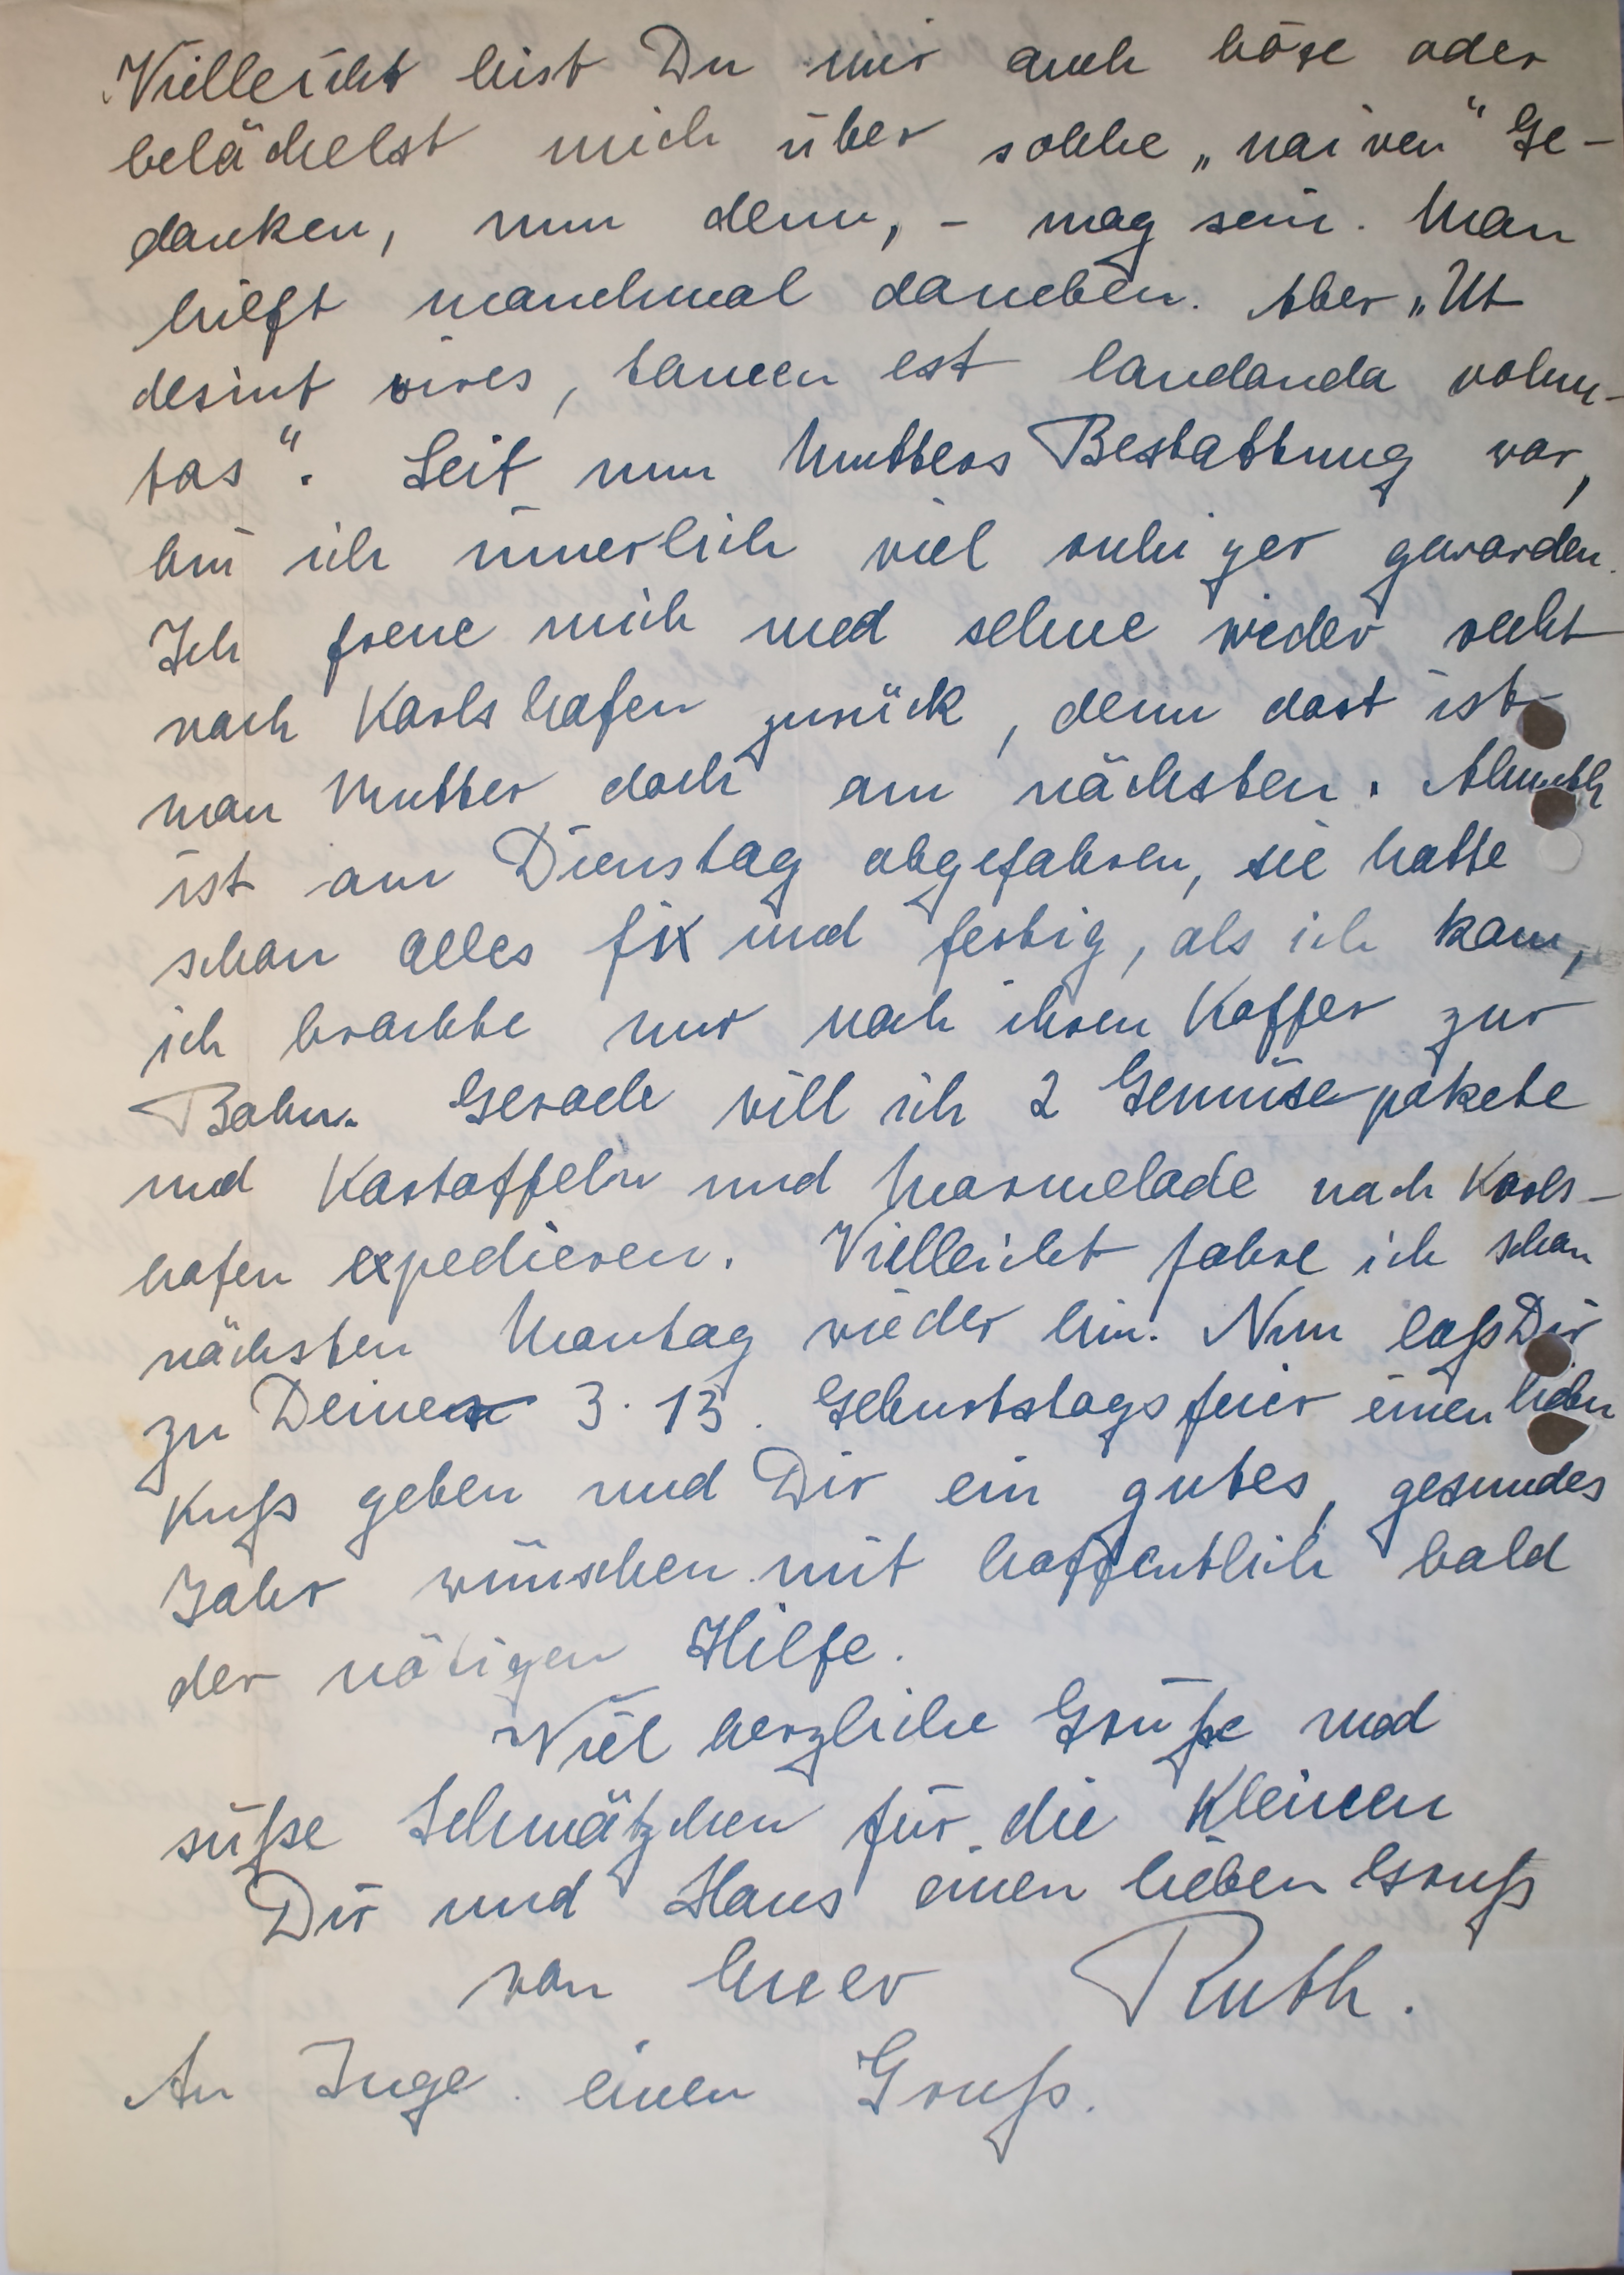 Vielleicht bist Du mir auch böse oder
belächelst mich über solche „naiven“ Ge-
danken, nun denn, - mag sein. Man
hilft manchmal daneben. Aber „Ut
desint vires, tamen est laudanda volun-
tas“. Seit nun Mutters Bestattung war,
bin ich innerlich viel ruhiger geworden.
Ich freue mich und sehne wieder recht
nach Karlshafen zurück, denn dort ist
man Mutter doch am nächsten. Almuth
ist am Dienstag abgefahren, sie hatte
schon alles fix und fertig, als ich kam,
ich brachte nur noch ihren Koffer zur
Bahn. Gerade will ich 2 Gemüsepakete
und Kartoffeln und Marmelade nach Karls-
hafen expedieren. Vielleicht fahre ich schon
nächsten Montag wieder hin. Nun laß Dir
zu Deiner 3.13. Geburtstagsfeier einen lieben
Kuß geben und Dir ein gutes, gesundes
Jahr wünschen mit hoffentlich bald
der nötigen Hilfe.
Viel herzliche Grüße und
süße Schmätzchen für die Kleinen
Dir und Hans einen lieben Gruß
von Eurer Ruth.
An Inge einen Gruß.